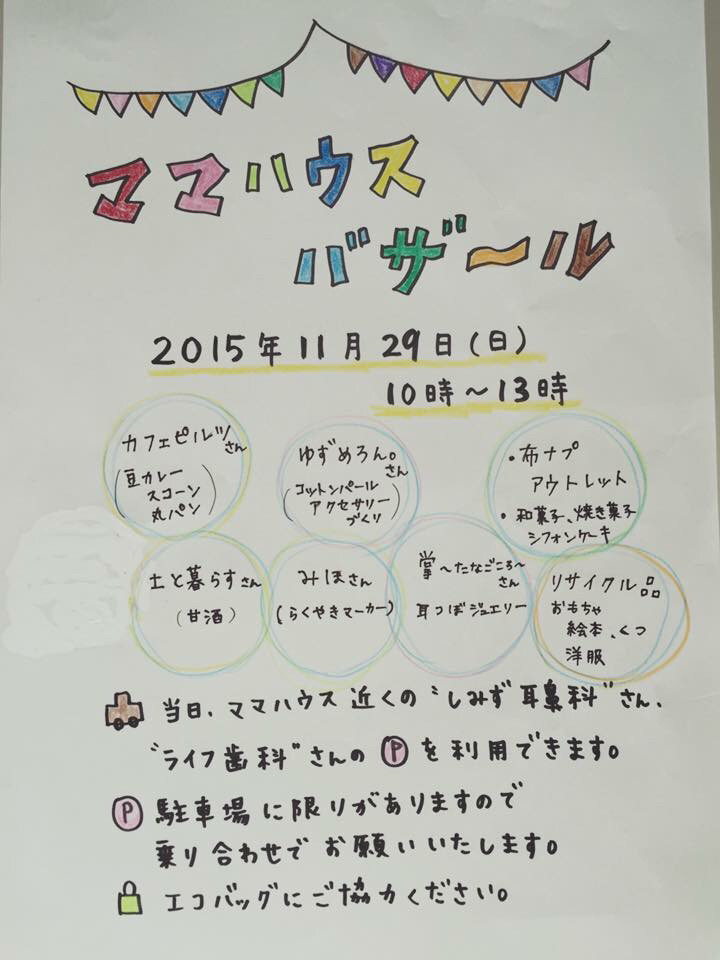 ママハウス
バザ〜ル
2015年11月29日(日)
10時〜13時
カフェピルツさん
(豆カレー
スコーン
丸パン)
ゆずめろん。さん
(コットンパール
アクセサリー
づくり)
・布ナプ
アウトレット
・和菓子、焼き菓子
シフォンケーキ
土と暮らすさん
(甘酒)
みほさん
(らくやきマーカー)
掌〜たなごころ〜
さん
耳つぼジュエリー
リサイクル品
おもちゃ
絵本、くつ
洋服
当日、ママハウス近くの“しみず耳鼻科”さん、
“ライフ歯科”さんのⓅを利用できます。
Ⓟ駐車場に限りがありますので
乗り合わせでお願いいたします。
エコバッグにご協力ください。